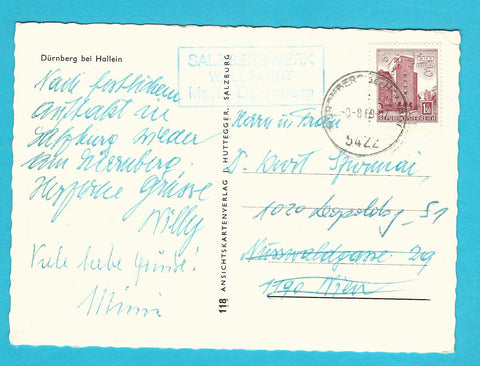 Dürnberg bei Hallein
SALZBERGWERK
WALLFAHRT
Maria Dürrnberg
Nach festlichem
Auftakt in
Salzburg wieder
am Dürrnberg.
Herzliche Grüsse
Willy
Viele liebe Grüsse!
Mimi
118 ANSICHTSKARTENVERLAG J. HUTTEGGER, SALZBURG
REPUBLIK ÖSTERREICH
5422
Herrn u. Frau
Dr. Kurt
1020
Nusswaldgasse 29
1190 Wien